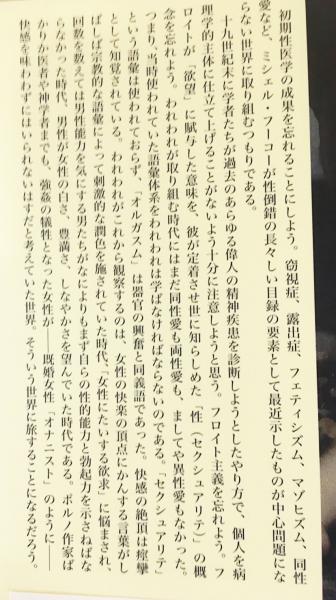 初期性医学の成果を忘れることにしよう。窃視症、露出症、フェティシズム、マゾヒズム、同性
愛など、ミシェル・フーコーが性倒錯の長々しい目録の要素として最近示したものが中心問題にな
らない世界に取り組むつもりである。
十九世紀末に学者たちが過去のあらゆる偉人の精神疾患を診断しようとしたやり方で、個人を病
理学的主体に仕立て上げることがないよう十分に注意しようと思う。フロイト主義を忘れよう。フ
ロイトが「欲望」に賦与した意味を、彼が定着させ世に知らしめた「性（セクシュアリテ）」の概
念を忘れよう。われわれが取り組む時代にはまだ同性愛も両性愛も、ましてや異性愛もなかった。
つまり、当時使われていた語彙体系をわれわれは学ばなければならないのである。「セクシュアリテ」
という語彙は使われておらず、「オルガスム」は器官の興奮と同義語であった。快感の絶頂は痙攣
として知覚されている。われわれがこれから観察するのは、女性の快楽の頂点にかんする言葉がし
ばしば宗教的な語彙によって刺激的な潤色を施されていた時代、「女性にたいする欲求」に悩まされ、
回数を数えては男性能力を気にする男たちがなによりもまず自らの性的能力と勃起力を示さねばな
らなかった時代、男性が女性の白さ、豊満さ、しなやかさを望んでいた時代である。ポルノ作家ば
かりか医者や神学者までも、強姦の犠牲となった女性が――既婚女性「オナニスト」のように――
快感を味わわずにはいられないはずだと考えていた世界。そういう世界に旅することになるだろう。